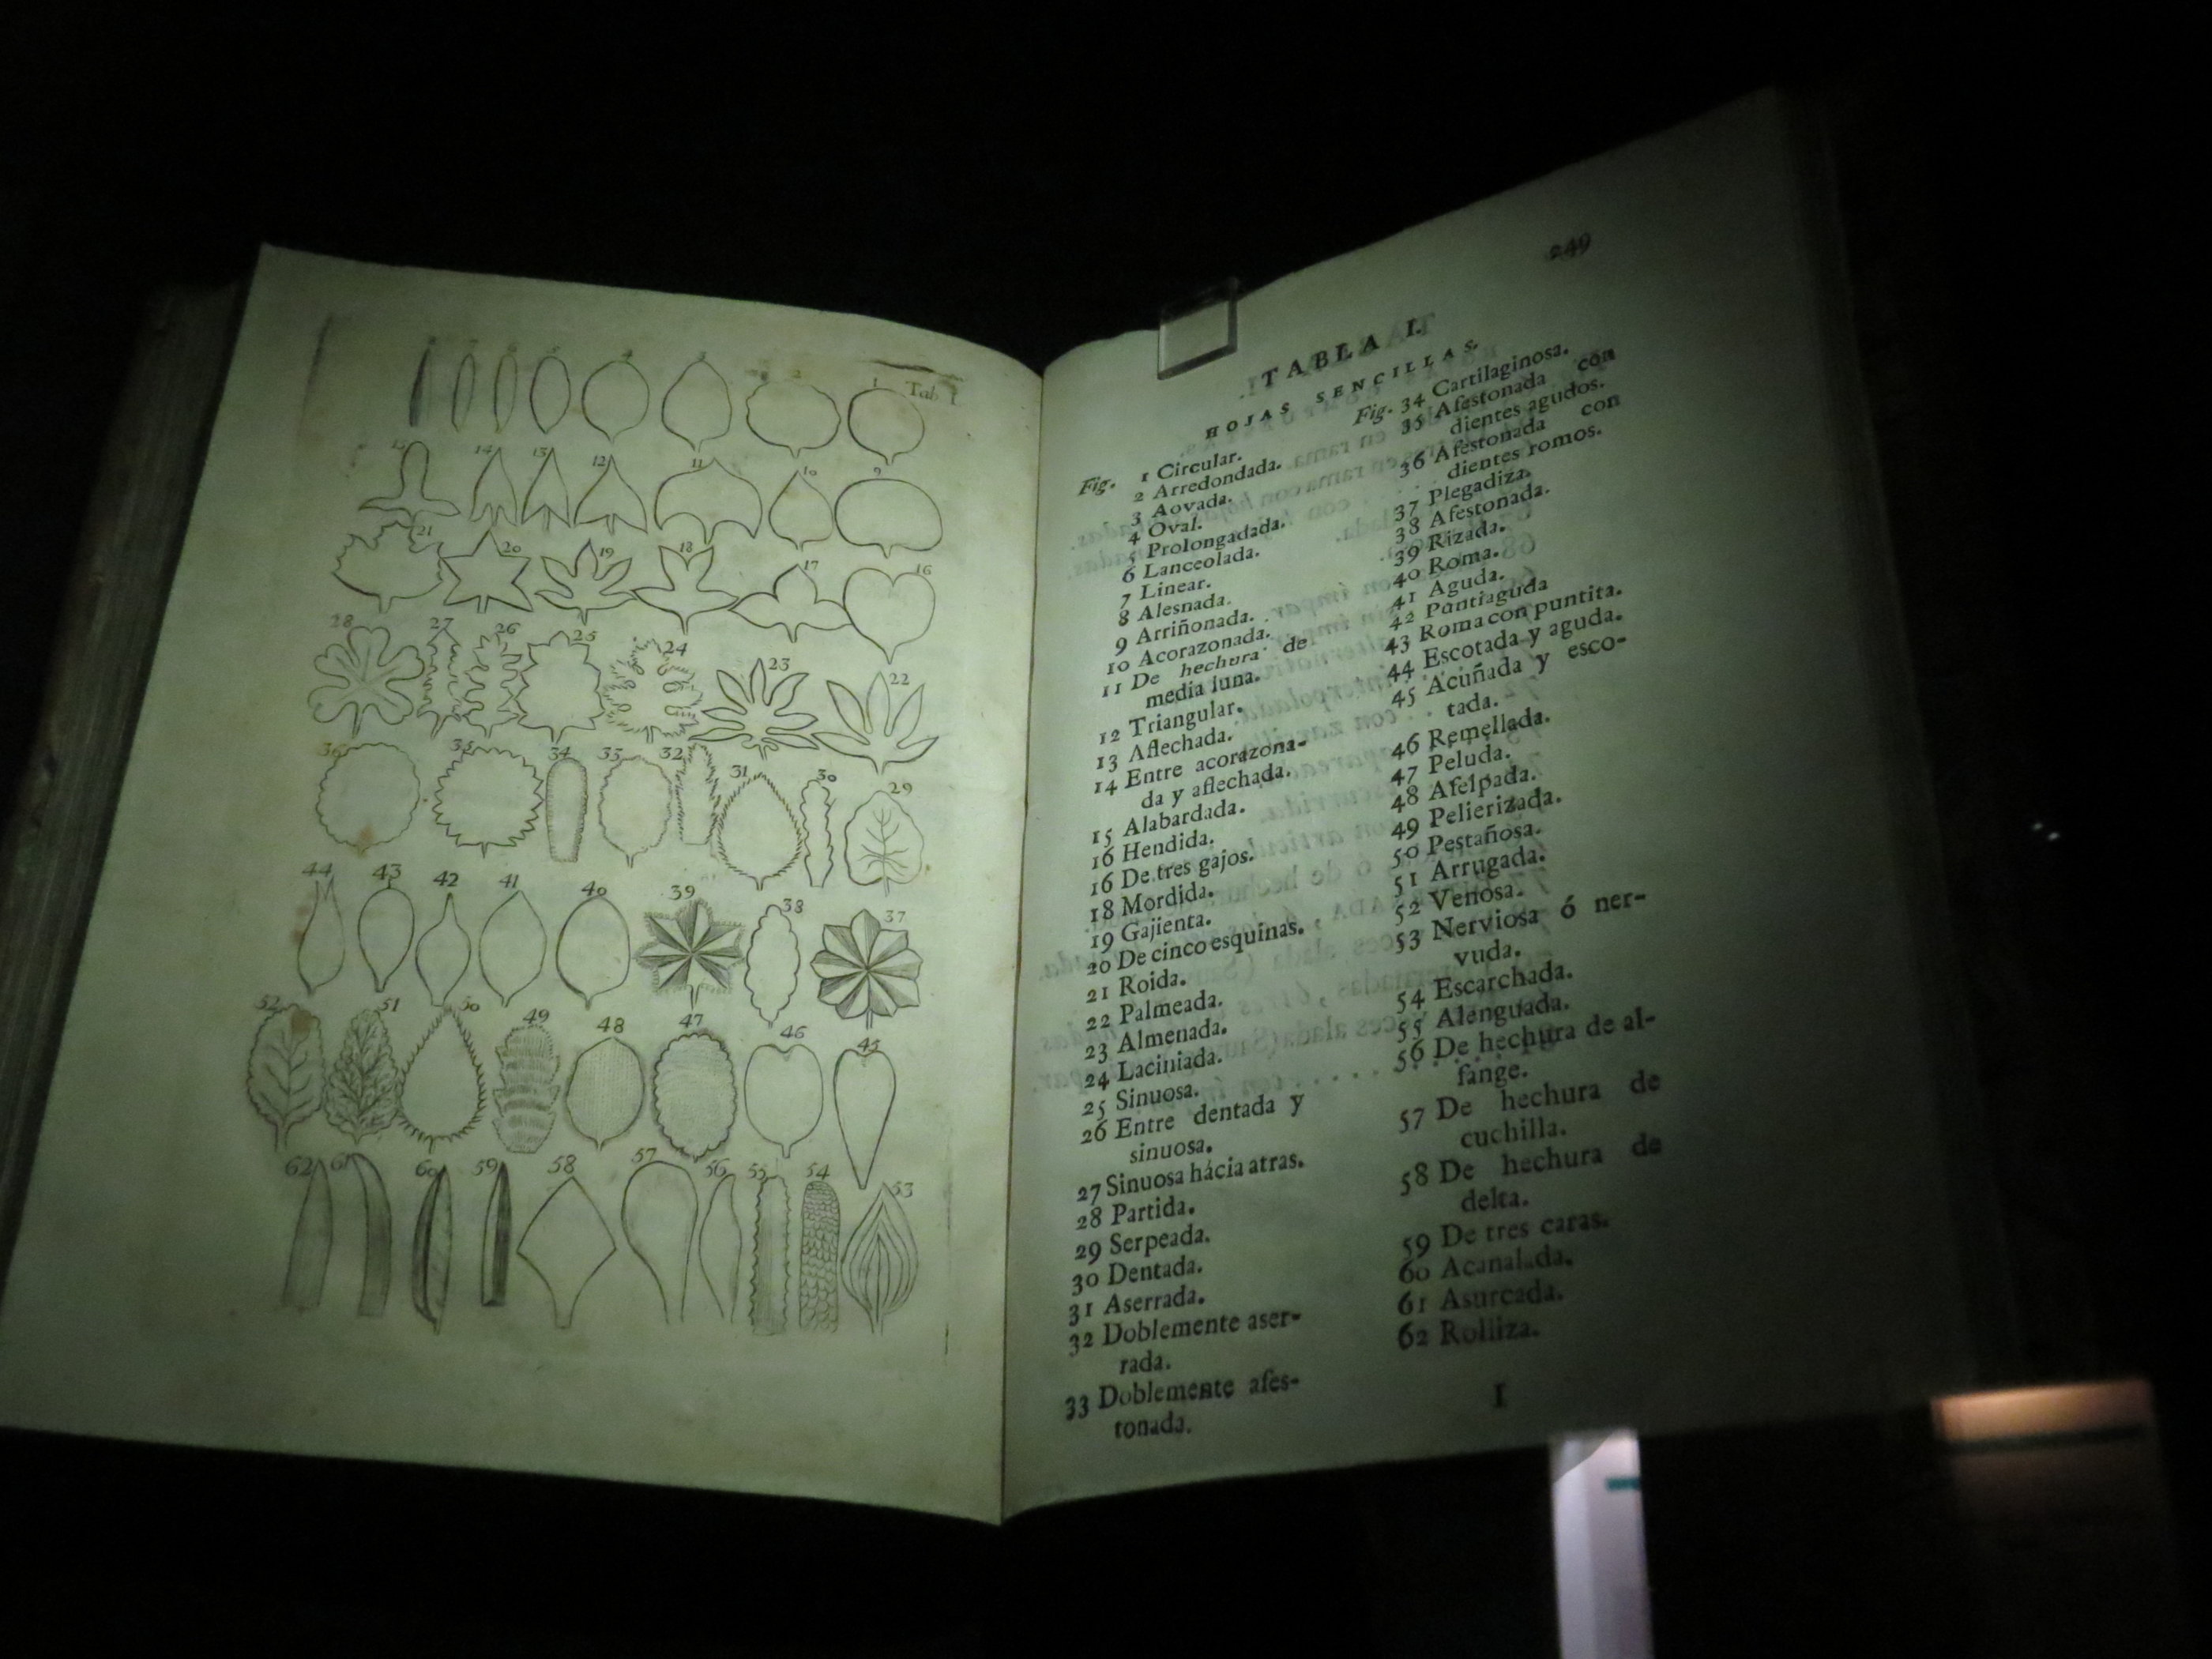 Tab. I.
8 7 6 5 4 3 2 1
15 14 13 12 11 10 9
21 20 19 18 17 16
28 27 26 25 24 23 22
36 35 34 33 32 31 30 29
44 43 42 41 40 39 38 37
52 51 50 49 48 47 46 45
62 61 60 59 58 57 56 55 54 53
249
TABLA I.
HOJAS SENCILLAS.
Fig. 1 Circular.
2 Arredondada.
3 Aovada.
4 Oval.
5 Prolongadada.
6 Lanceolada.
7 Linear.
8 Alesnada.
9 Arriñonada.
10 Acorazonada.
11 De hechura de
media luna.
12 Triangular.
13 Aflechada.
14 Entre acorazona-
da y aflechada.
15 Alabardada.
16 Hendida.
16 De tres gajos.
18 Mordida.
19 Gajienta.
20 De cinco esquinas.
21 Roida.
22 Palmeada.
23 Almenada.
24 Laciniada.
25 Sinuosa.
26 Entre dentada y
sinuosa.
27 Sinuosa hácia atras.
28 Partida.
29 Serpeada.
30 Dentada.
31 Aserrada.
32 Doblemente aser-
rada.
33 Doblemente afes-
tonada.
Fig. 34 Cartilaginosa.
35 Afestonada con
dientes agudos.
36 Afestonada con
dientes romos.
37 Plegadiza.
38 Afestonada.
39 Rizada.
40 Roma.
41 Aguda.
42 Puntiaguda
43 Roma con puntita.
44 Escotada y aguda.
45 Acuñada y esco-
tada.
46 Remellada.
47 Peluda.
48 Afelpada.
49 Pelierizada.
50 Pestañosa.
51 Arrugada.
52 Venosa.
53 Nerviosa ó ner-
vuda.
54 Escarchada.
55 Alenguada.
56 De hechura de al-
fange.
57 De hechura de
cuchilla.
58 De hechura de
delta.
59 De tres caras.
60 Acanalada.
61 Asurcada.
62 Rolliza.
I